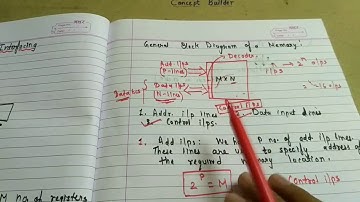 Concept Builder
Interfacing
General Block Diagram of a Memory.
Decoder
Add. i/ps
(P-lines)
M × N
n → 2ⁿ o/ps
i/ps
Data bus
Data i/ps
(N-lines)
Control i/ps
1. Addr. i/p lines
Data input lines
Control i/ps.
1. Add i/ps: We have P no. of add i/p lines
These lines are used to specify address of
the required memory location.
2ᴾ = M
Control i/ps
M no. of registers